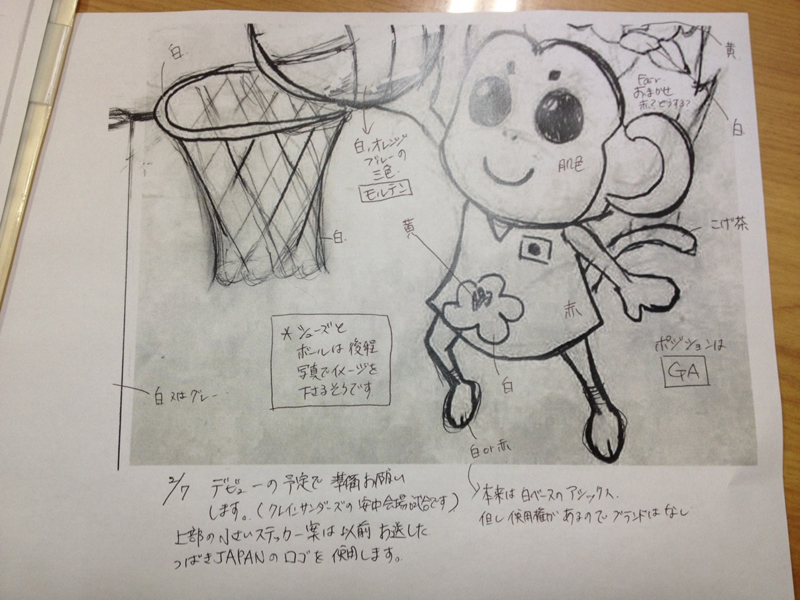 白.
黄
Fair
おまかせ
白
白、オレンジ
ブルーの
三色.
モルテン
肌色
白.
黄
こげ茶
赤
＊ シューズと
ボールは後程
写真でイメージを
下さるそうです
白
ポジションは
GA
白又はグレー
白or赤
2/7 デビューの予定で準備お願い
します。(クレインサンダーズの安中会場試合です)
上部の小さいステッカー案は以前お送した
つばきJAPANのロゴを使用します。
本来は白ベースのアシックス.
但し使用権があるのでブランドはなし